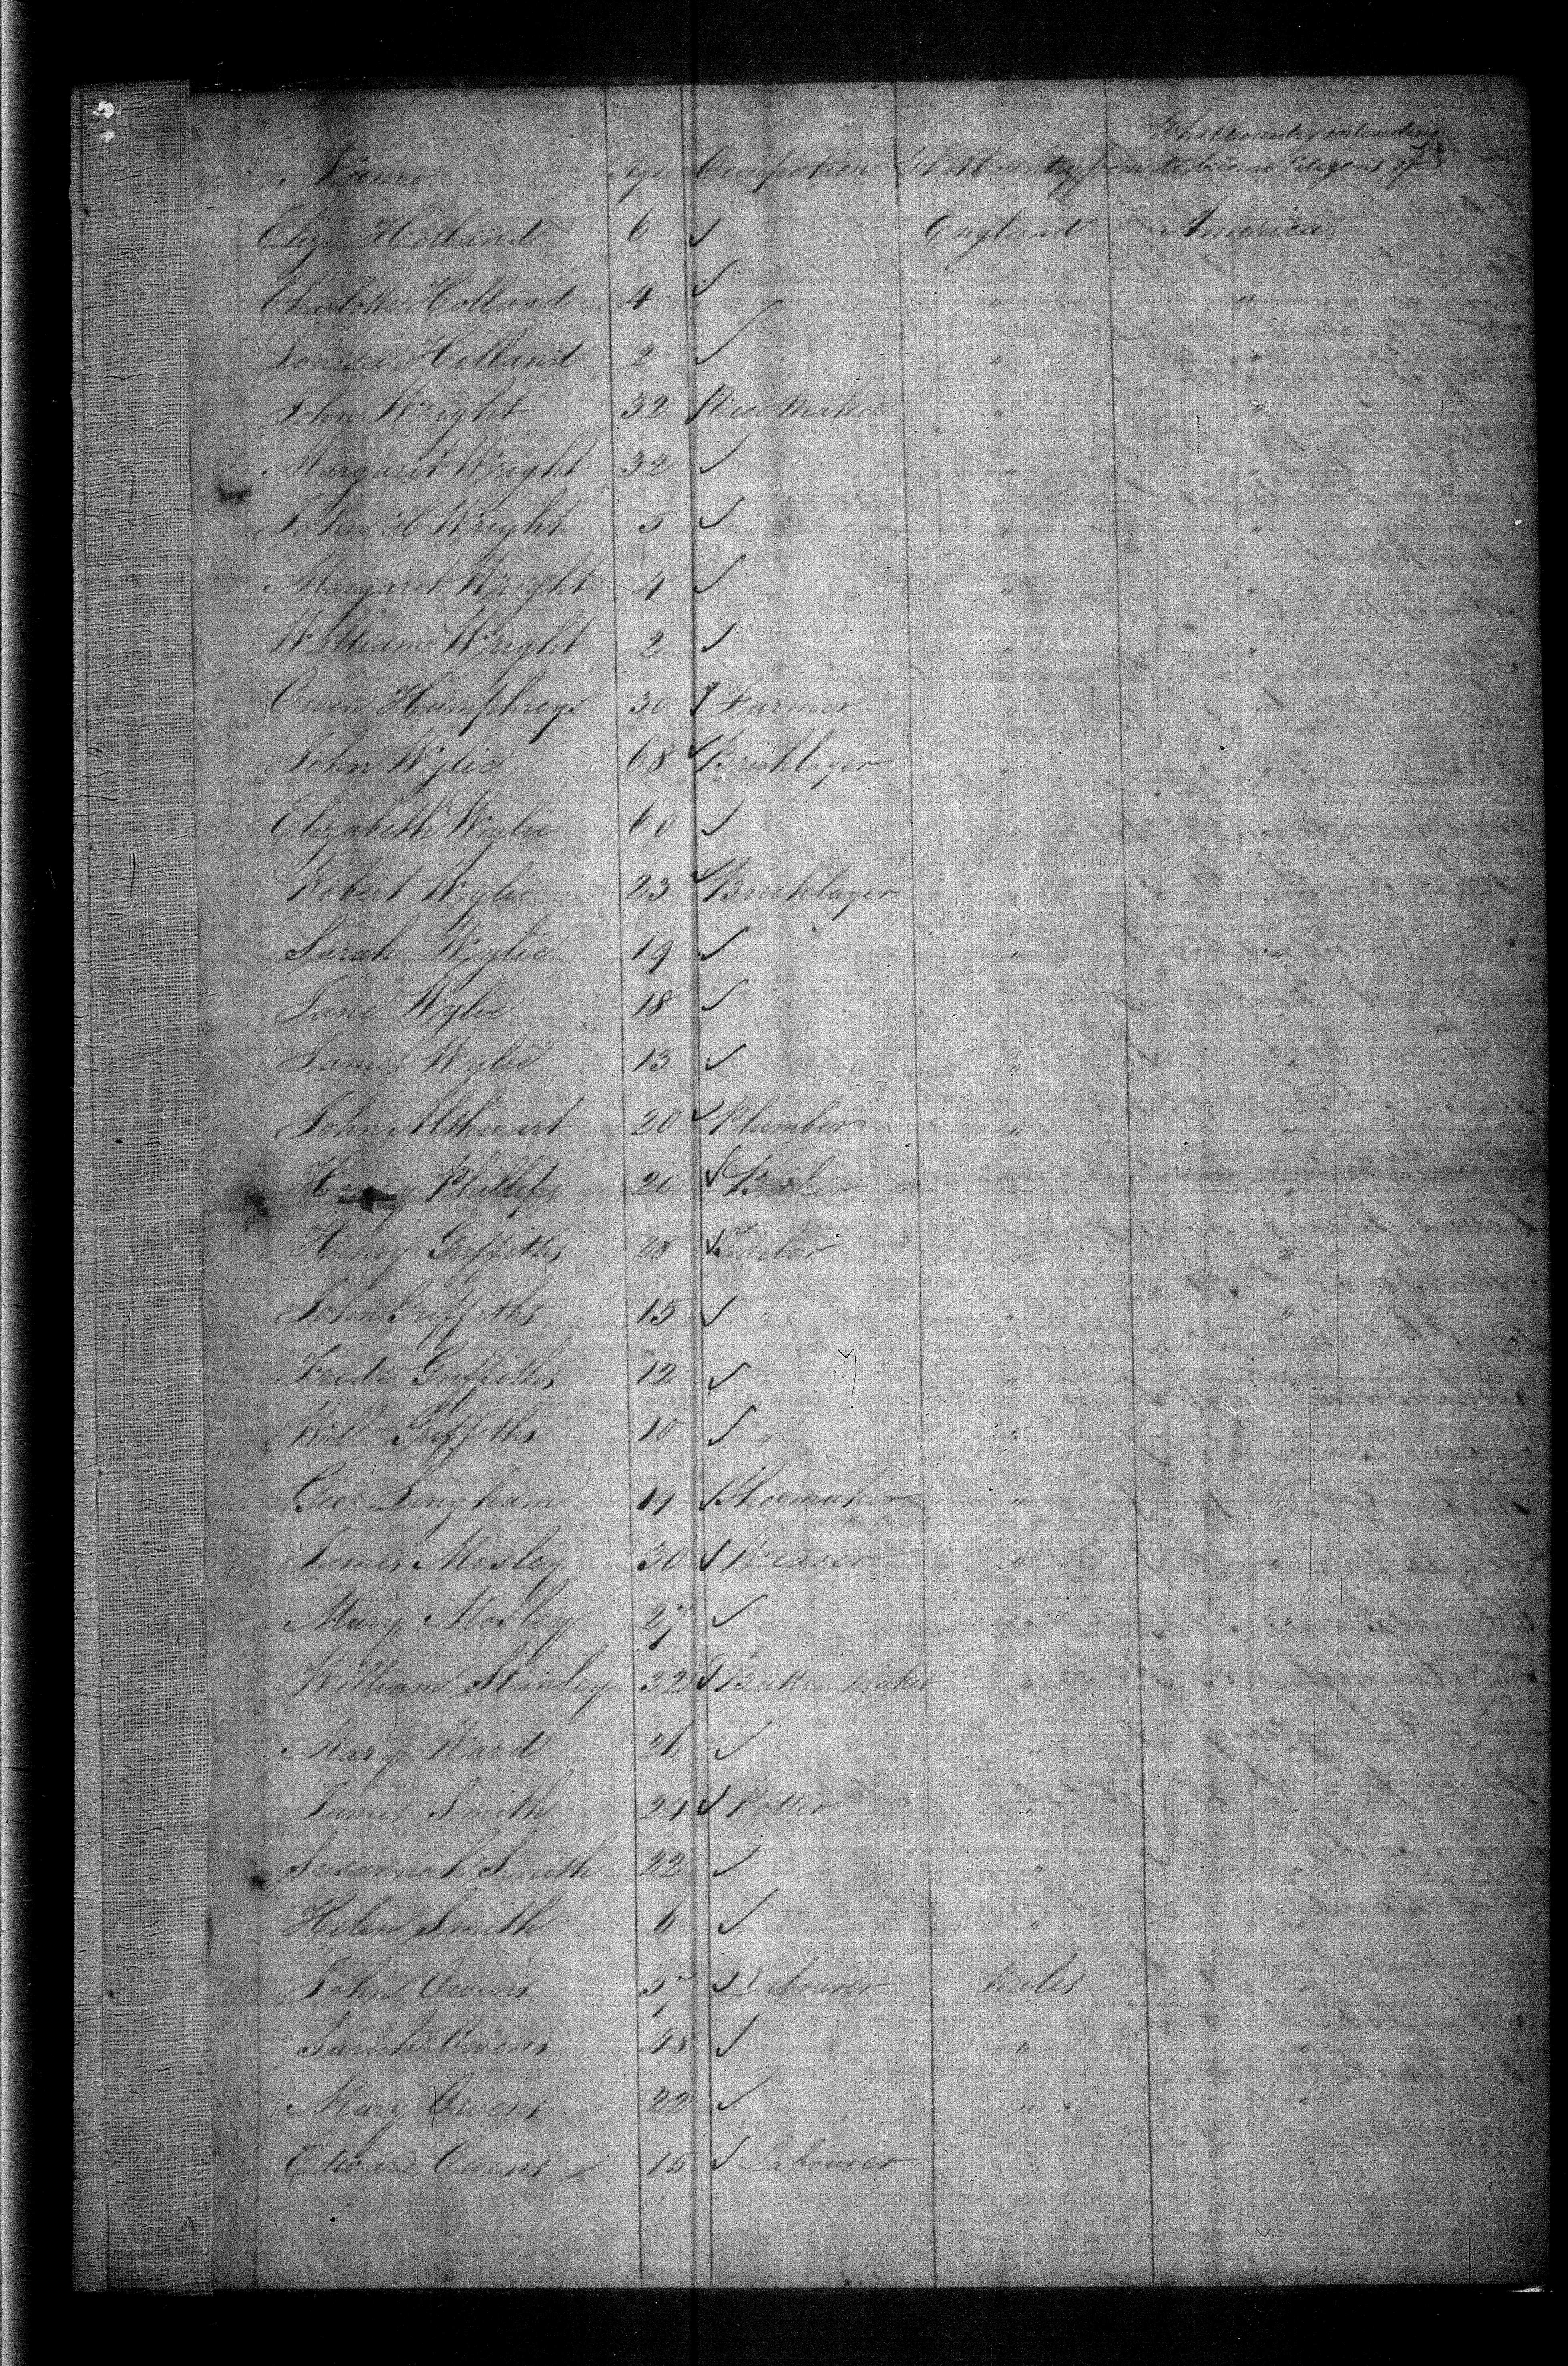 What Country intending
Name Age Occupation What Country from to become Citizens of
Eliza Holland 6 ✓ England America
Charlotte Holland 4 ✓ " "
Louisa Holland 2 ✓ " "
John Wright 32 Vice Maker " "
Margaret Wright 32 ✓ " "
John H Wright 5 ✓ " "
Margaret Wright 4 ✓ " "
William Wright 2 ✓ " "
Owen Humphreys 30 Farmer " "
John Wylie 68 ✓ Bricklayer " "
Elizabeth Wylie 60 ✓ " "
Robert Wylie 23 ✓ Bricklayer " "
Sarah Wylie 19 ✓ " "
Jane Wylie 18 ✓
James Wylie 13 ✓ " "
John 20 ✓ Plumber " "
Henry Phillips 20 ✓ " "
Henry Griffiths 28 ✓ Tailor " "
John Griffiths 15 ✓ " " "
Fredk Griffiths 12 ✓ " " "
Willm Griffiths 10 ✓ " " "
Geor Lingham 19 ✓ Shoemaker " "
James Mosley 30 ✓ Weaver " "
Mary Mosley 27 ✓ " "
William Stanley 32 ✓ Button Maker " "
Mary Ward 26 ✓ " "
James Smith 24 ✓ Potter " "
Susannah Smith 22 ✓ " "
Helen Smith 6 ✓ " "
John Owens 57 ✓ Labourer Wales "
Sarah Owens 48 ✓ " "
Mary Owens 22 ✓ " "
Edward Owens 15 ✓ Labourer " "